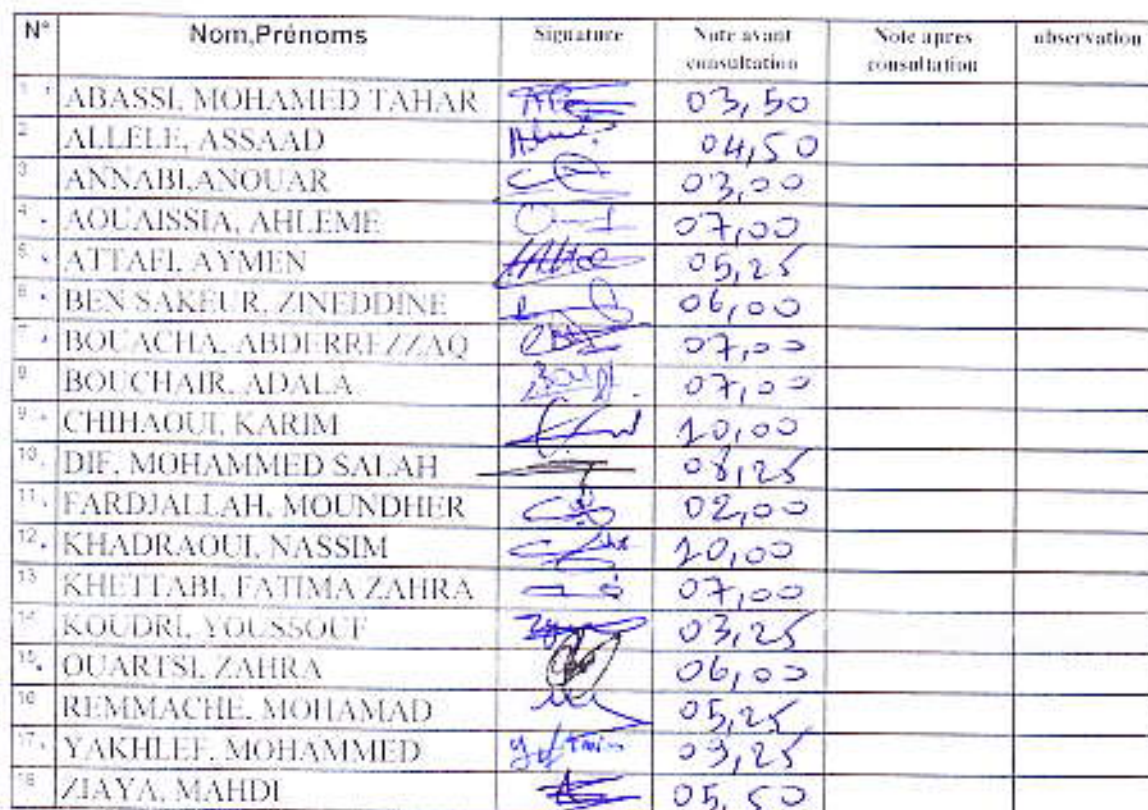 N° Nom,Prénoms Signature Note avant consultation Note apres consultation observation
1 ABASSI, MOHAMED TAHAR 03,50
2 ALLELE, ASSAAD 04,50
3 ANNABI,ANOUAR 03,00
4 AOUAISSIA, AHLEME 07,00
5 ATTAFI, AYMEN 05,25
6 BEN SAKEUR, ZINEDDINE 06,00
7 BOUACHA, ABDERREZZAQ 07,00
8 BOUCHAIR, ADALA 07,00
9 CHIHAOUI, KARIM 10,00
10 DIF, MOHAMMED SALAH 08,25
11 FARDJALLAH, MOUNDHER 02,00
12 KHADRAOUI, NASSIM 10,00
13 KHETTABI, FATIMA ZAHRA 07,00
14 KOUDRI, YOUSSOUF 03,25
15 OUARTSI, ZAHRA 06,00
16 REMMACHE, MOHAMAD 05,25
17 YAKHLEF, MOHAMMED 09,25
18 ZIAYA, MAHDI 05,50